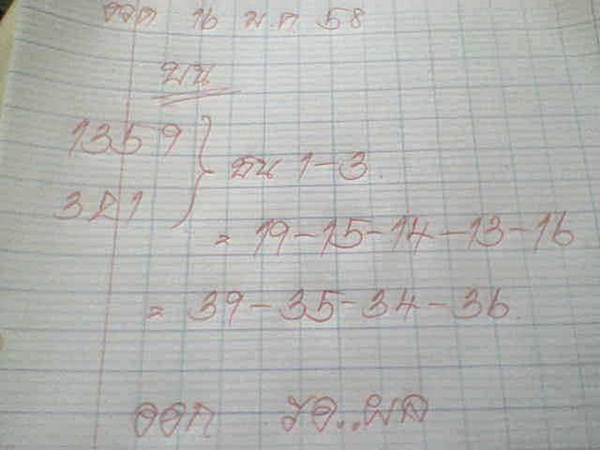 ออก 16 ม.ค 58
บน
1359
321
} บน 1-3.
= 19-15-14-13-16
= 39-35-34-36.
ออก รอ..ผล